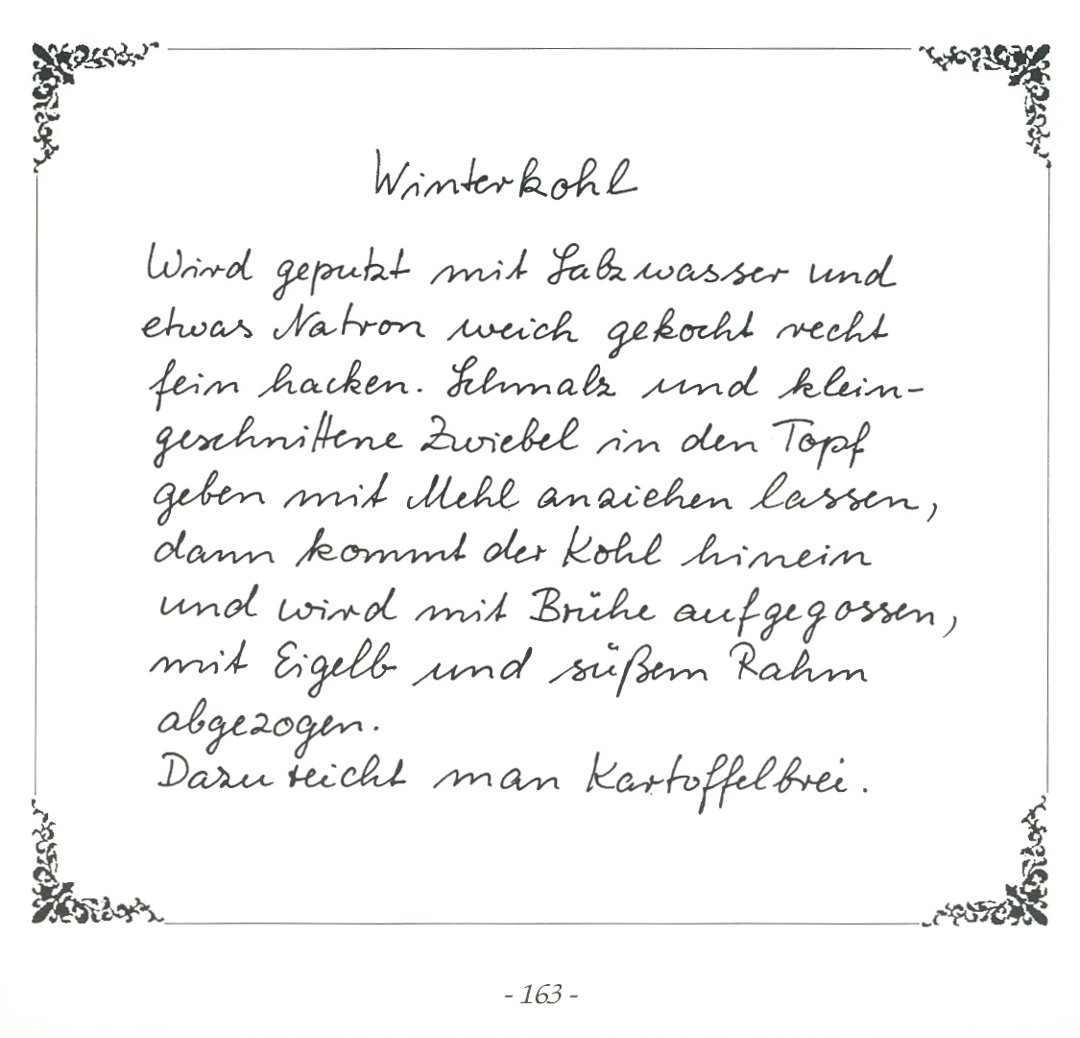 Winterkohl
Wird geputzt mit Salzwasser und
etwas Natron weich gekocht recht
fein hacken. Schmalz und klein-
geschnittene Zwiebel in den Topf
geben mit Mehl anziehen lassen,
dann kommt der Kohl hinein
und wird mit Brühe aufgegossen,
mit Eigelb und süßem Rahm
abgezogen.
Dazu reicht man Kartoffelbrei.
- 163 -